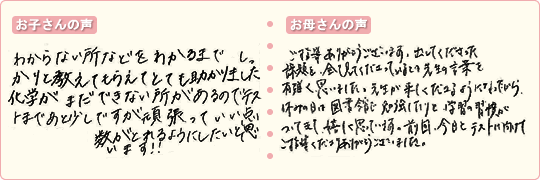 お子さんの声
わからない所などをわかるまで しっ
かりと教えてもらえてとても助かりました
化学がまだできない所があるのでテス
トまであと少しですが頑張っていい点
数がとれるようにしたいと思
います!!
お母さんの声
ご指導ありがとうございます。出してくださった
課題を全てしてくださっているとの先生の言葉を
有難く思いました。先生が来てくださるようになってから、
休みの日は図書館に勉強しに行ったりと学習の習慣が
ついてきて、嬉しく思っています。前回、今日とテストに向けて
ご指導くださりありがとうございました。